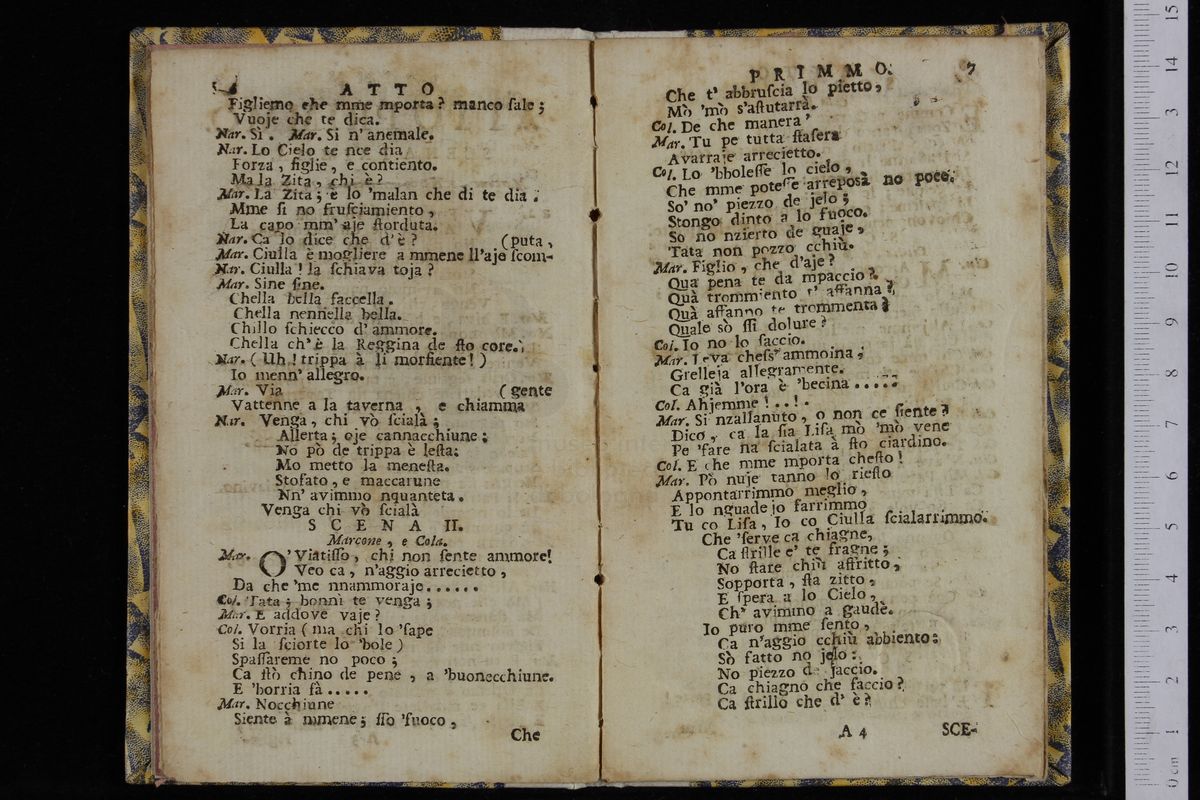 ATTO
Figliemo che mme mporta? manco ſale;
Vuoje che te dica.
Nar. Sì. Mar. Si n' anemale.
Nar. Lo Cielo te nce dia
Forza, figlie, e contiento.
Ma la Zita, chi è?
Mar. La Zita; è lo 'malan che di te dia.
Mme ſi no fruſciamiento,
La capo mm' aje ſtorduta.
Nar. Ca lo dice che d'è? (puta,
Mar. Ciulla è mogliere a mmene ll'aje ſcom-
Nar. Ciulla! la ſchiava toja?
Mar. Sine ſine.
Chella bella faccella.
Chella nennella bella.
Chillo ſchiecco d'ammore.
Chella ch'è la Reggina de ſto core.
Nar. (Uh! trippa à li morſiente!)
Io menn' allegro.
Mar. Via (gente
Vattenne a la taverna, e chiamma
Nar. Venga, chi vò ſcialà;
Allerta; oje cannacchiune;
No pò de trippa è leſta:
Mo metto la meneſta.
Stofato, e maccarune
Nn' avimmo nquanteta.
Venga chi vò ſcialà
SCENA II.
Marcone, e Cola.
Mar. O' Viatiſſo, chi non ſente ammore!
Veo ca, n'aggio arrecietto,
Da che 'me nnammoraje......
Col. Tata; bonnì te venga;
Mar. E addove vaje?
Col. Vorria (ma chi lo 'ſape
Si la ſciorte lo 'bole)
Spaſſareme no poco;
Ca ſtò chino de pene, a 'buonecchiune.
E 'borria fà.....
Mar. Nocchiune
Siente à mmene; ſſo 'fuoco,
Che
PRIMMO. 7
Che t' abbruſcia lo pietto,
Mò 'mò s'aſtutarrà.
Col. De che manera'
Mar. Tu pe tutta ſtaſera
Avarraje arrecietto.
Col. Lo 'bboleſſe lo cielo,
Che mme poteſſe arrepoſà no poco.
So' no' piezzo de jelo;
Stongo dinto a lo fuoco.
So no nzierto de guaje,
Tata non pozzo cchiù.
Mar. Figlio, che d'aje?
Qua pena te da mpaccio?
Quà trommiento t' affanna?
Quà affanno te trommenta?
Quale sò ſſi dolure?
Col. Io no lo ſaccio.
Mar. Leva cheſs' ammoina;
Grelleja allegramente.
Ca già l'ora è 'becina.....
Col. Ahjemme!..!.
Mar. Si nzallanuto, o non ce ſiente?
Dico, ca la ſia Liſa mò 'mò vene
Pe 'fare na ſcialata à ſto ciardino.
Col. E che mme mporta cheſto!
Mar. Pò nuje tanno lo rieſto
Appontarrimmo meglio,
E lo nguadejo farrimmo
Tu co Liſa, Io co Ciulla ſcialarrimmo.
Che 'ſerve ca chiagne,
Ca ſtrille e' te fragne;
No ſtare chiù affritto,
Sopporta, ſta zitto,
E ſpera a lo Cielo,
Ch' avimmo a gaudè.
Io puro mme ſento,
Ca n'aggio cchiù abbiento:
Sò fatto no jelo:
No piezzo de jaccio.
Ca chiagno che faccio?
Ca ſtrillo che d' è?
A 4 SCE-
0 cm 1 2 3 4 5 6 7 8 9 10 11 12 13 14 15